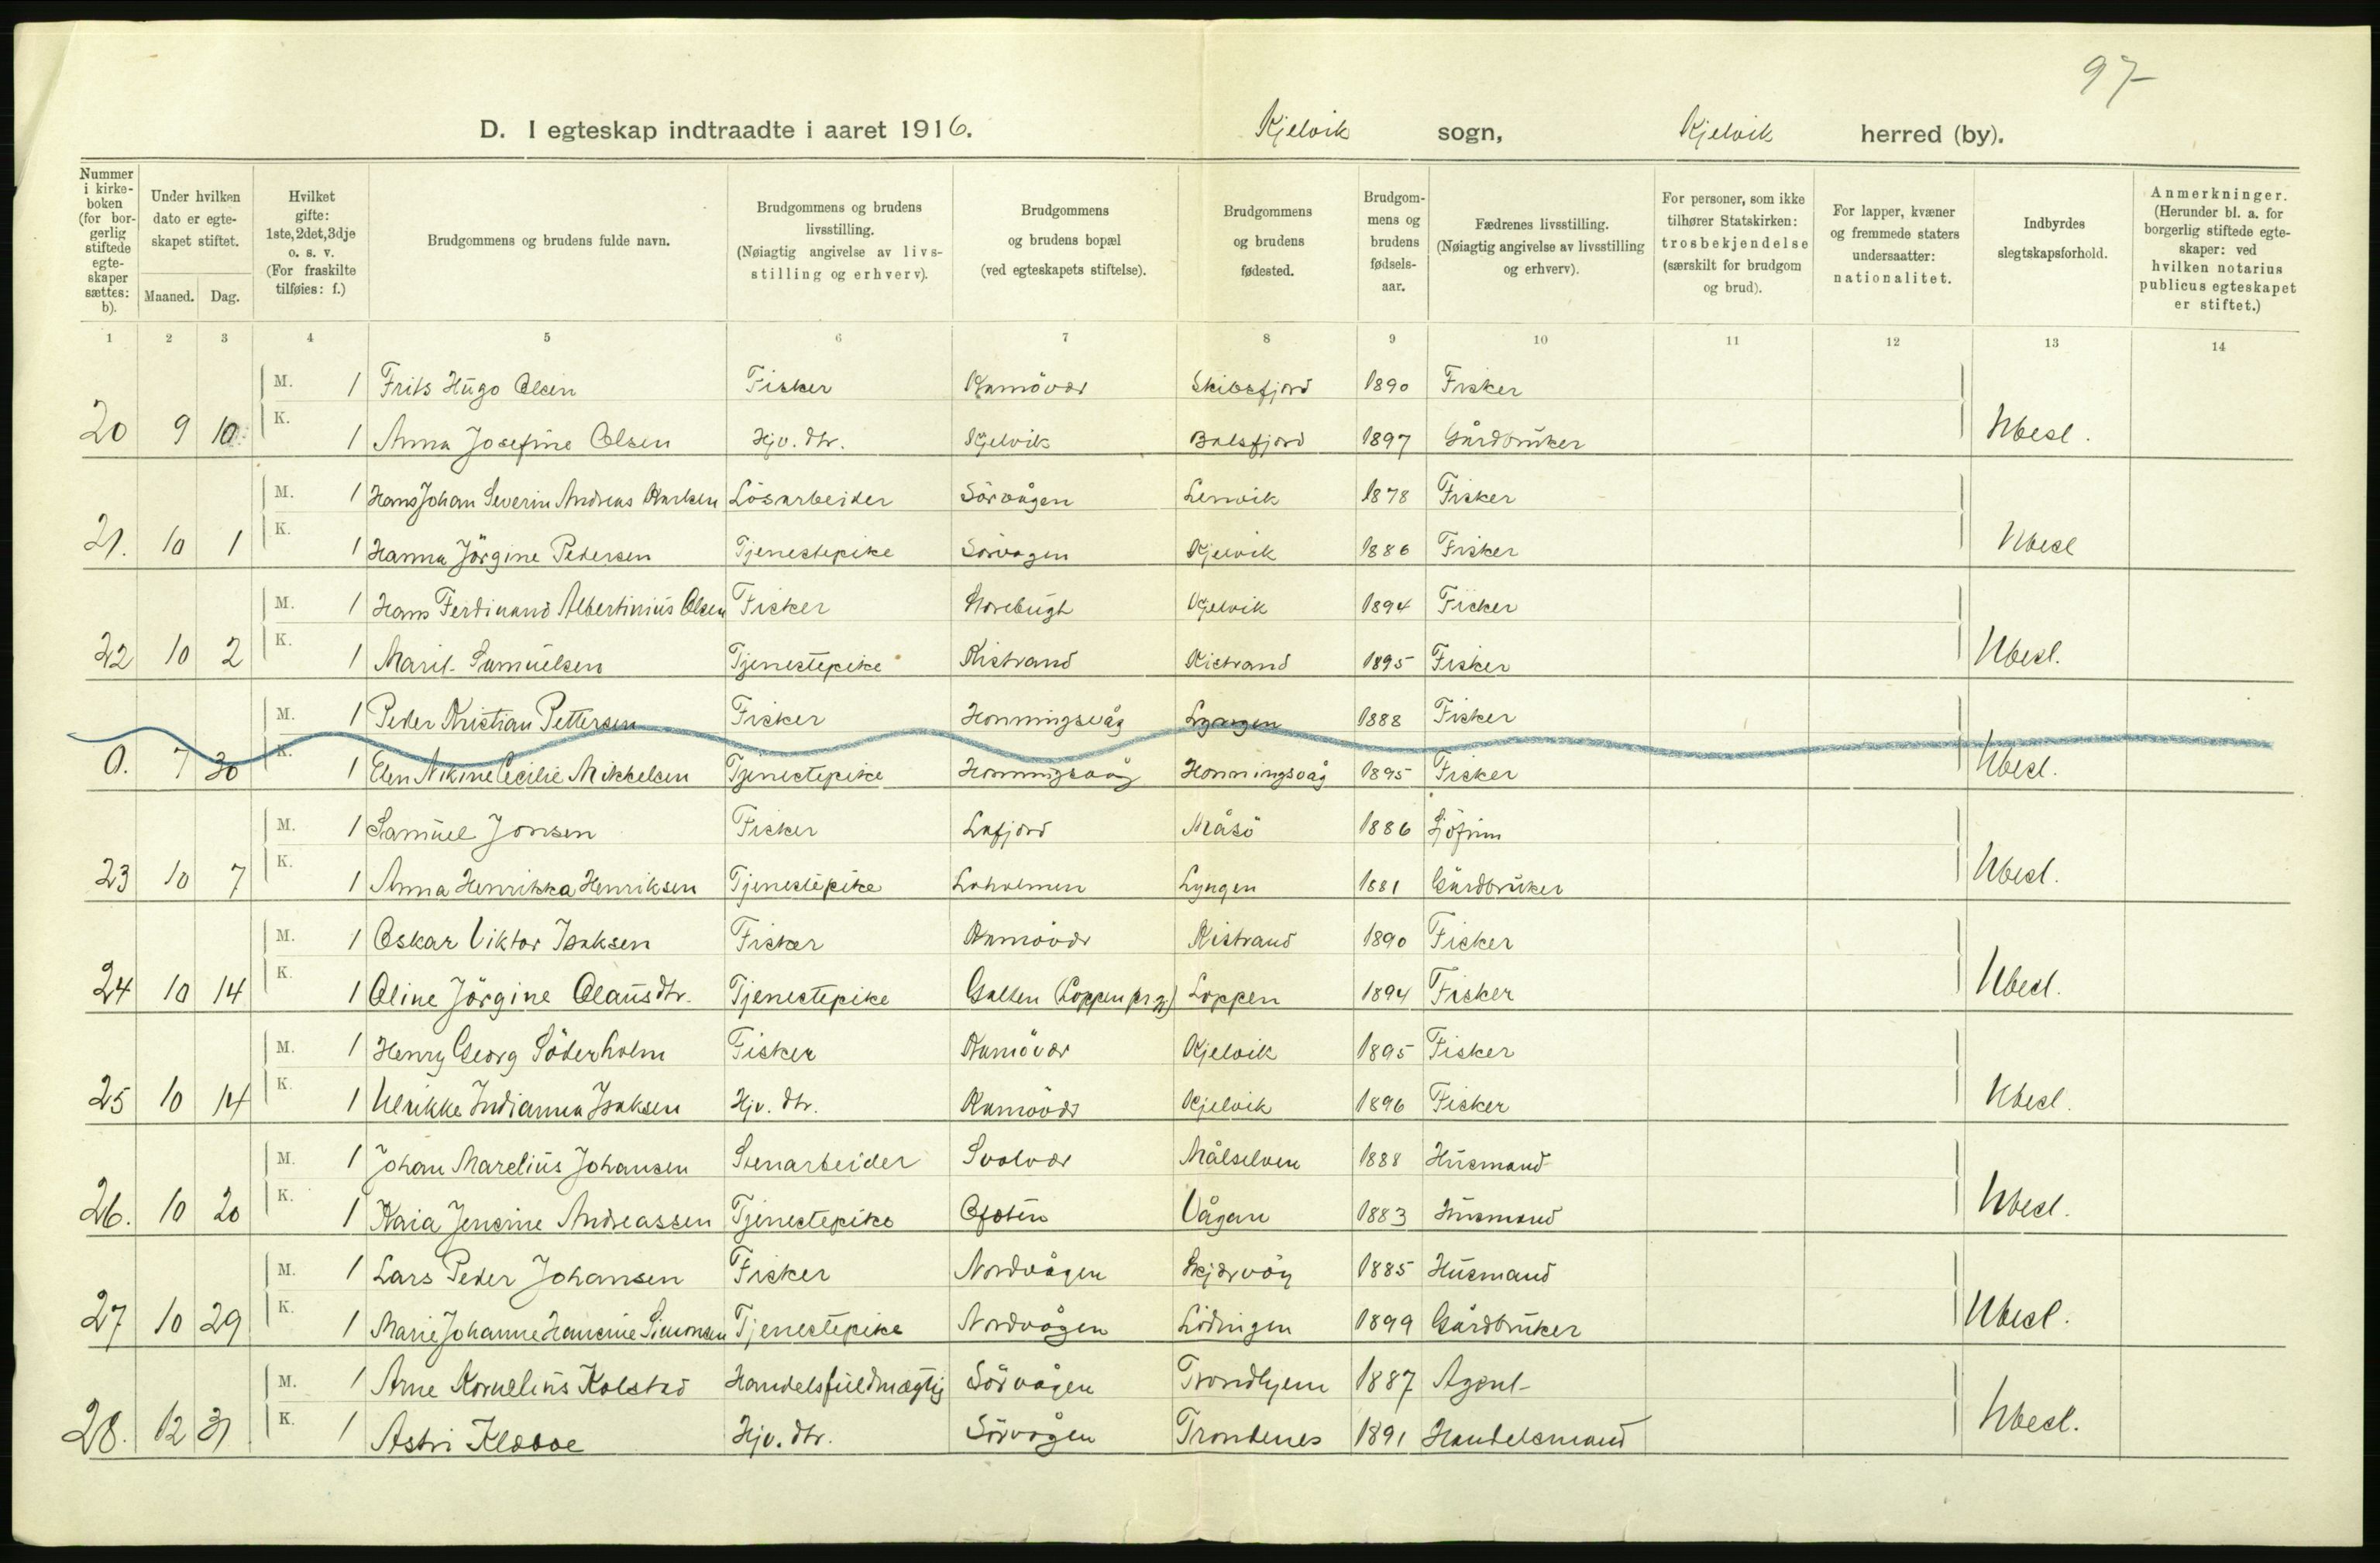 97
D. I egteskap indtraadte i aaret 1916. Kjelvik sogn, Kjelvik herred (by).
Nummer i kirke-boken (for bor-gerlig stiftede egte-skaper sættes: b).
Under hvilken dato er egte-skapet stiftet.
Maaned. Dag.
Hvilket gifte: 1ste, 2det, 3dje o. s. v. (For fraskilte tilføies: f.)
Brudgommens og brudens fulde navn.
Brudgommens og brudens livsstilling. (Nøiagtig angivelse av livs-stilling og erhverv).
Brudgommens og brudens bopæl (ved egteskapets stiftelse).
Brudgommens og brudens fødested.
Brudgom-mens og brudens fødsels-aar.
Fædrenes livsstilling. (Nøiagtig angivelse av livsstilling og erhverv).
For personer, som ikke tilhører Statskirken: trosbekjendelse (særskilt for brudgom og brud).
For lapper, kvæner og fremmede staters undersaatter: nationalitet.
Indbyrdes slegtskapsforhold.
Anmerkninger. (Herunder bl. a. for borgerlig stiftede egte-skaper: ved hvilken notarius publicus egteskapet er stiftet.)
1 2 3 4 5 6 7 8 9 10 11 12 13 14
M. 1 Frits Hugo Olsen Fisker Kamövær Skibsfjord 1890 Fisker
20 9 10. K. 1 Anna Josefine Olsen Hjv. dtr. Kjelvik Balsfjord 1897 Gårdbruker Ubesl.
M. 1 Hans Johan Severin Andreas Lösarbeider Sörvågen Lenvik 1878 Fisker
21. 10 1 K. 1 Hanna Jörgine Pedersen Tjenestepike Sörvågen Kjelvik 1886 Fisker Ubesl
M. 1 Hans Ferdinand Albertinius Olsen Fisker Kjelvik 1894 Fisker
22 10 2 K. 1 Marit Samuelsen Tjenestepike Kistrand Kistrand 1895 Fisker Ubesl.
M. 1 Peder Kristian Pettersen Fisker Honningsvåg Lyngen 1888 Fisker
0. 7 30 K. 1 Elen Nikine Cecilie Mikkelsen Tjenestepike Honningsvåg Honningsvåg 1895 Fisker Ubesl.
M. 1 Samuel Jonsen Fisker Lafjord Måsö 1886 Sjöfinn
23 10 7 K. 1 Anna Henrikka Henriksen Tjenestepike Loholmen Lyngen 1881 Gårdbruker Ubesl.
M. 1 Oskar Viktor Isaksen Fisker Kamövær Kistrand 1890 Fisker
24 10 14 K. 1 Oline Jörgine Olausdtr. Tjenestepike Galten (Loppen prgj) Loppen 1894 Fisker Ubesl.
M. 1 Henry Georg Söderholm Fisker Kamövær Kjelvik 1895 Fisker
25 10 14 K. 1 Ulrikke Indianna Isaksen Hjv. dtr. Kamövær Kjelvik 1896 Fisker Ubesl.
M. 1 Johan Marelius Johansen Stenarbeider Svolvær Målselven 1888 Husmand
26. 10 20 K. 1 Kaia Jensine Andreassen Tjenestepike Ofoten Vågan 1883 Husmand Ubesl.
M. 1 Lars Peder Johansen Fisker Nordvågen Skjærvöy 1885 Husmand
27 10 29 K. 1 Marie Johanne Hansine Simonsen Tjenestepike Nordvågen Lödingen 1899 Gårdbruker Ubesl.
M. 1 Arne Kornelius Kolstad Handelsfuldmægtig Sörvågen Trondhjem 1887 Agent
28. 12 31 K. 1 Astri Klæboe Hjv. dtr. Sörvågen Trondenes 1891 Handelsmand Ubesl.